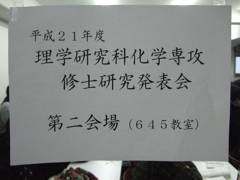 平成２１年度
理学研究科化学専攻
修士研究発表会
第二会場（６４５教室）